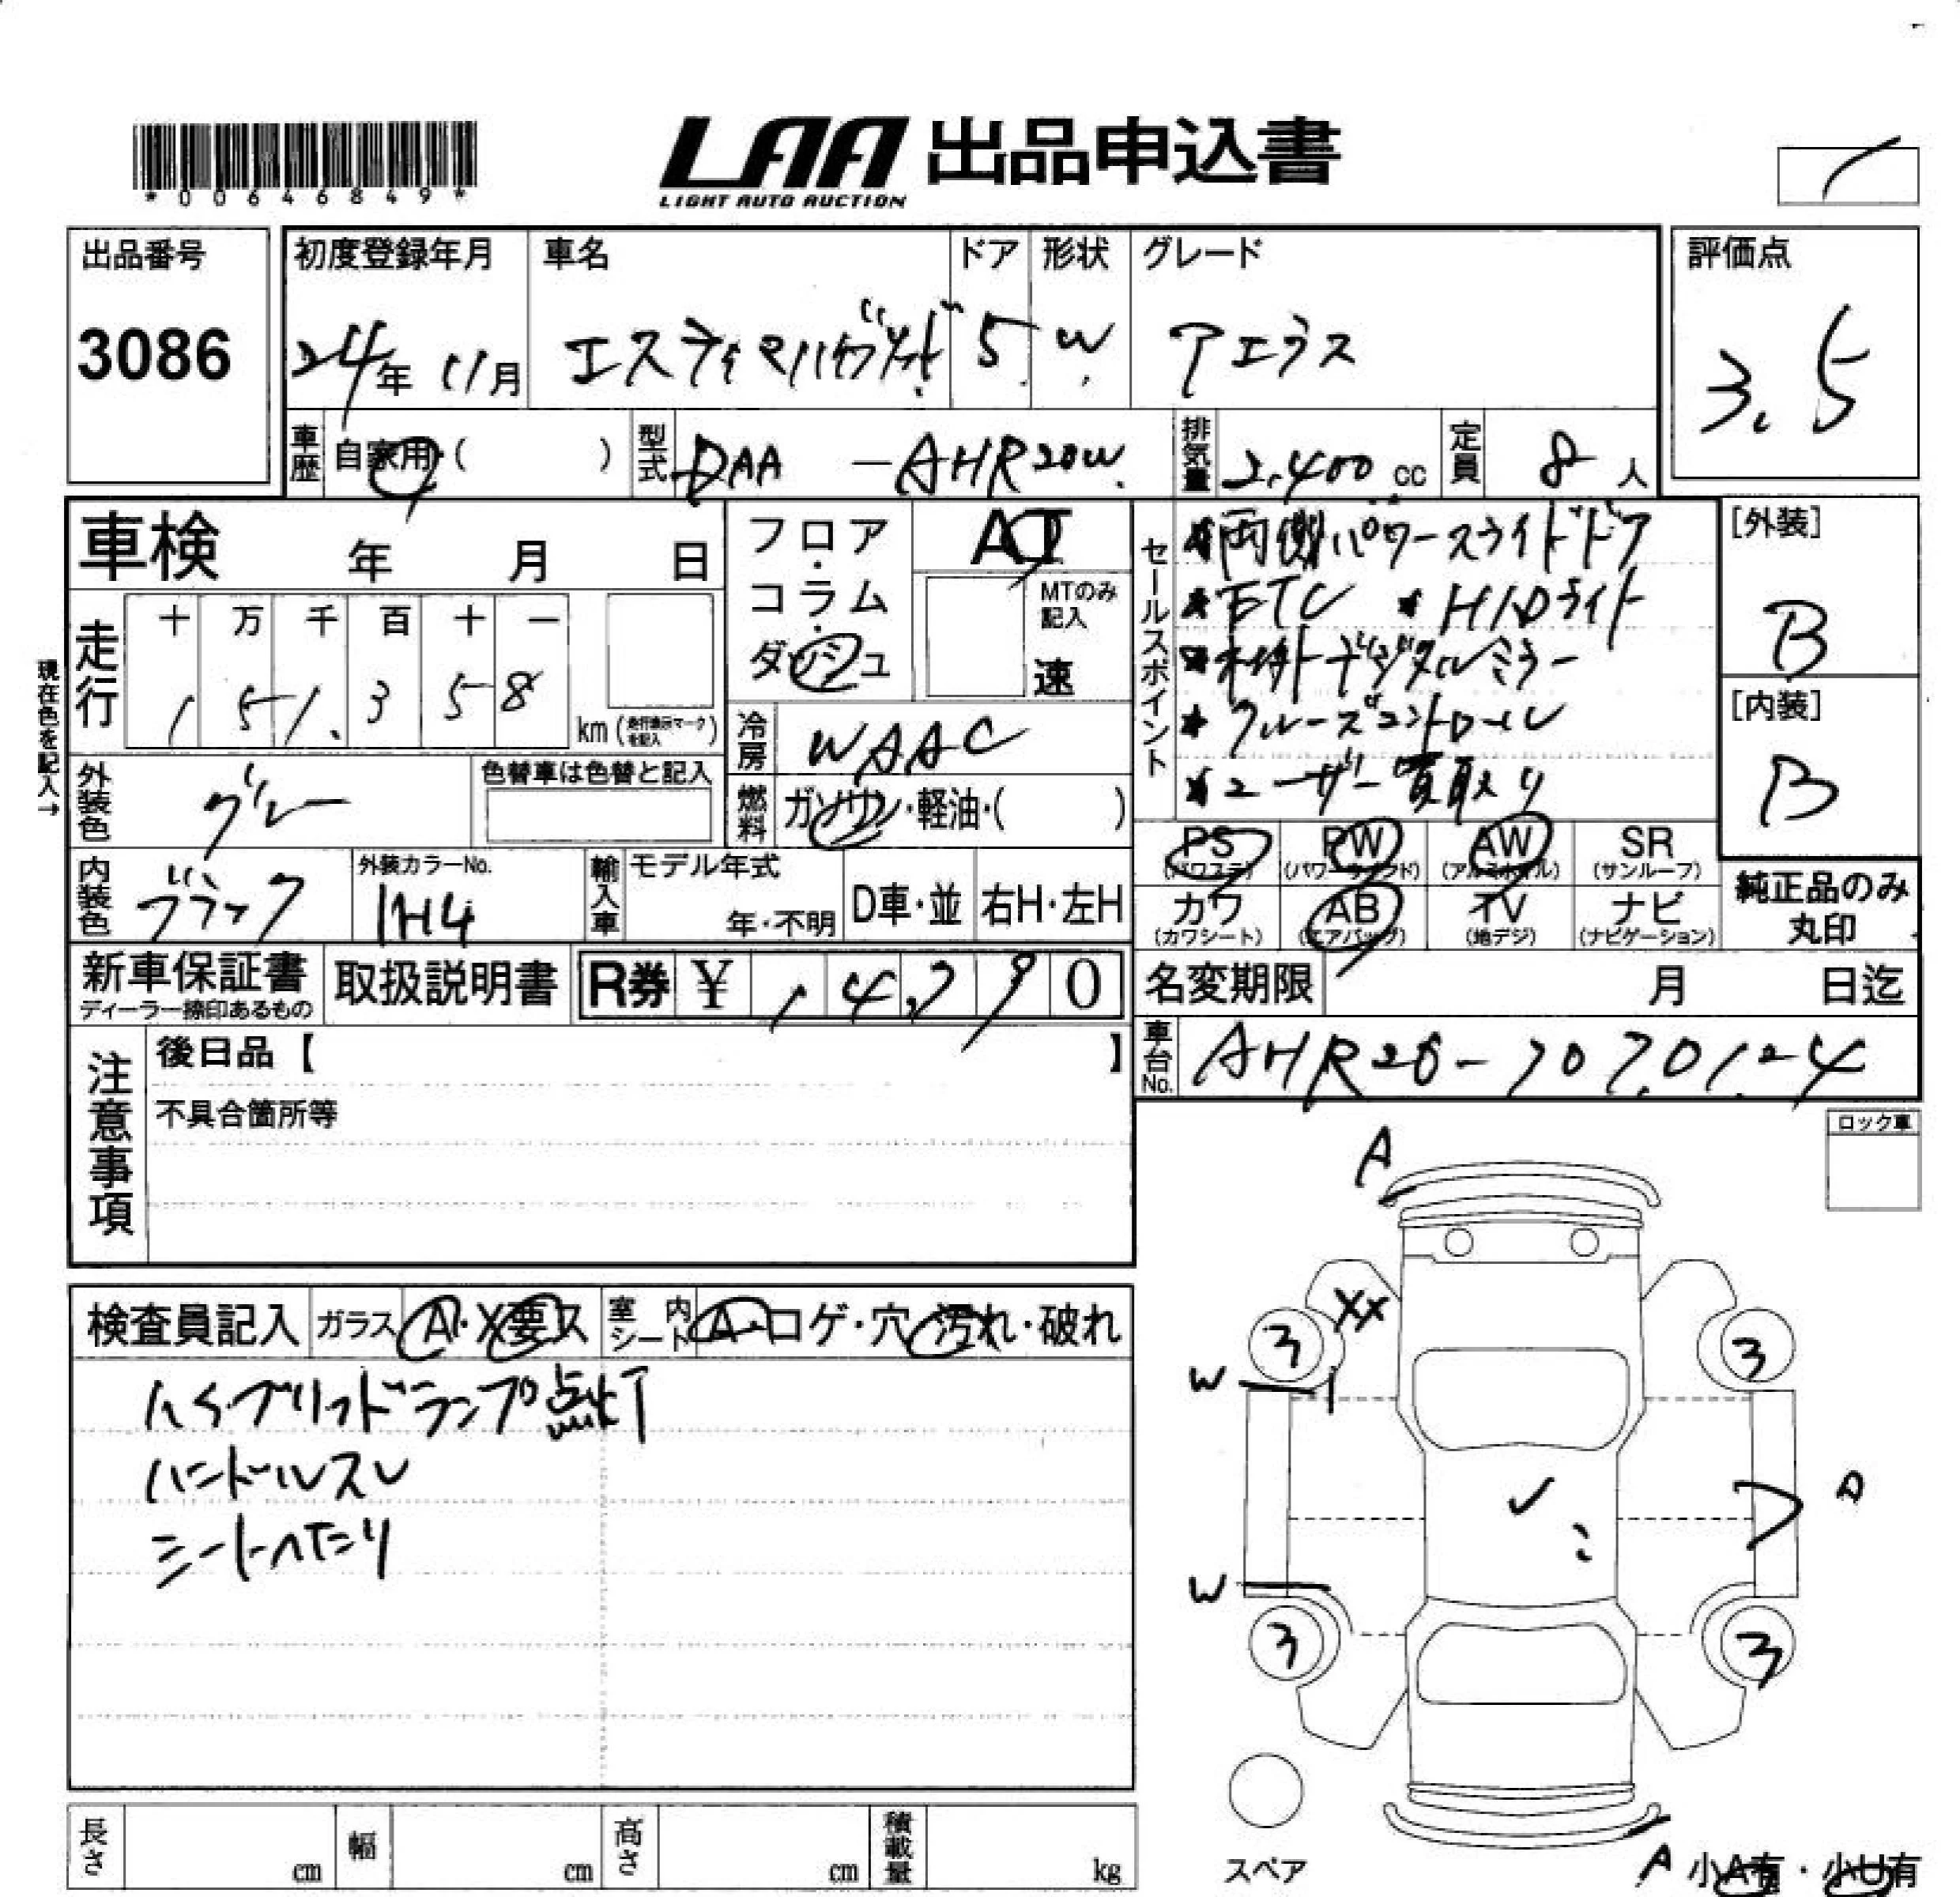 *00646849*
LAA 出品申込書
LIGHT AUTO AUCTION
出品番号
3086
初度登録年月
24年 11月
車名
エスティマハイブリッド
ドア
5
形状
W
グレード
アエラス
評価点
3.5
車歴 自家用・( )
型式 DAA - AHR20W
排気量 2,400 cc
定員 8 人
車検 年 月 日
フロア・コラム・ダッシュ
AT
MTのみ記入
速
走行 十 万 千 百 十 一
151,358
km (走行表示マークを記入)
現在色を記入→
冷房 WAAC
外装色 グレー
色替車は色替と記入
燃料 ガソリン・軽油・( )
内装色 ブラック
外装カラーNo.
1H4
輸入車 モデル年式
年・不明
D車・並
右H・左H
セールスポイント
★両側パワースライドドア
★ETC ★HIDライト
デジタルミラー
★クルーズコントロール
★ユーザー買取り
[外装]
B
[内装]
B
PS (パワステ)
PW (パワーウインド)
AW (アルミホイル)
SR (サンルーフ)
カワ (カワシート)
AB (エアバッグ)
TV (地デジ)
ナビ (ナビゲーション)
純正品のみ丸印
新車保証書
ディーラー捺印あるもの
取扱説明書
R券 ¥ 14,790
名変期限 月 日迄
車台No. AHR20-7070124
注意事項
後日品【 】
不具合箇所等
ロック車
検査員記入
ガラス A・X要ス
室内シート A・コゲ・穴・汚れ・破れ
ハイブリッドランプ点灯
ハンドルスレ
シートヘたり
A
XX
3
3
W
A
W
3
3
スペア
A 小A有・小U有
長さ cm
幅 cm
高さ cm
積載量 kg